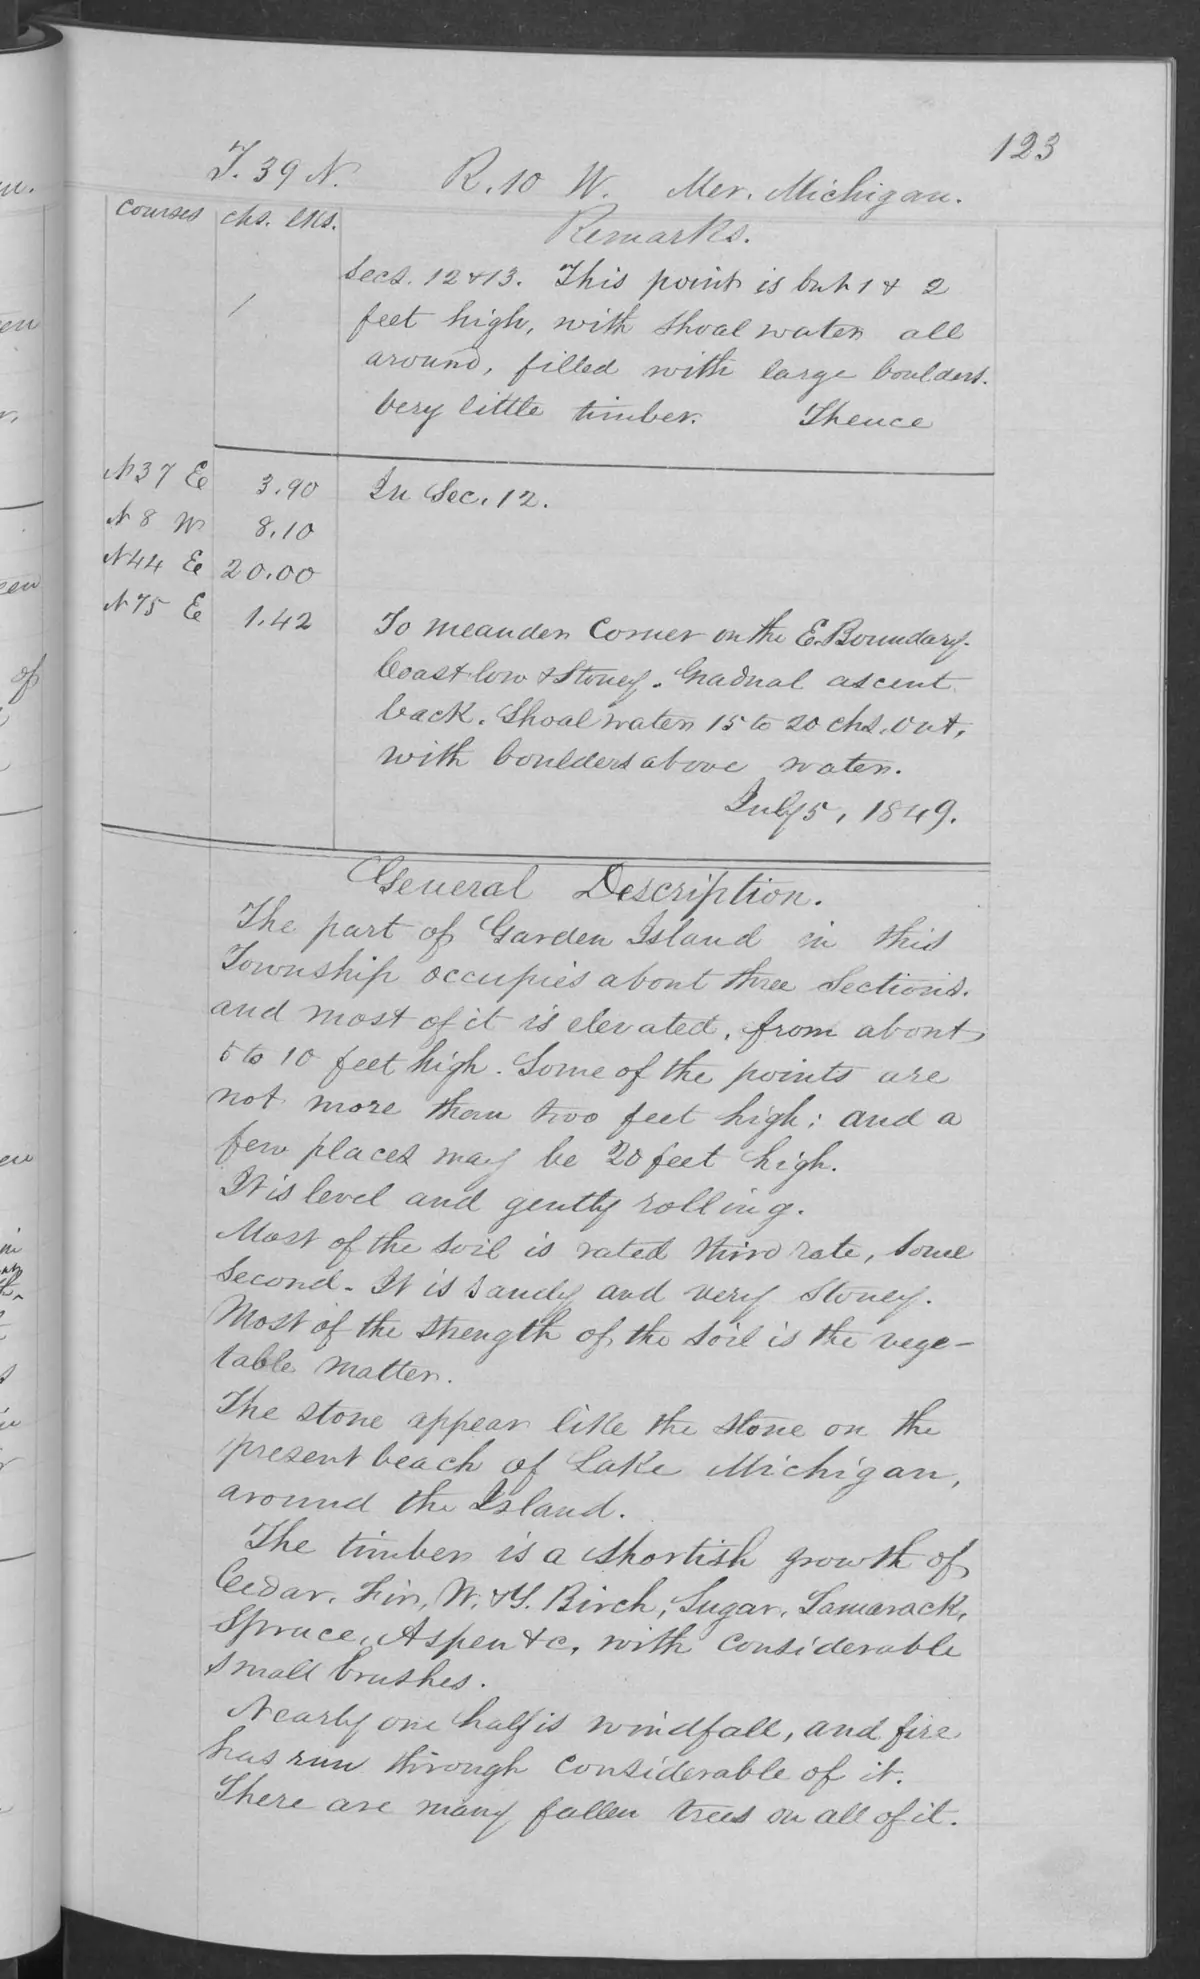 123
T. 39 N. R. 10 W. Mer. Michigan.
Courses chs. lks. Remarks.
Secs. 12 & 13. This point is but 1 & 2
feet high, with shoal water all
around, filled with large boulders.
Very little timber. Thence
N 37 E 3.90 In Sec. 12.
N 8 W 8.10
N 44 E 20.00
N 75 E 1.42 To meander Corner on the E. Boundary.
Coast low & Stoney. Gradual ascent
back. Shoal water 15 to 20 chs. out,
with boulders above water.
July 5, 1849.
General Description.
The part of Garden Island in this
Township occupies about three Sections.
and most of it is elevated, from about
5 to 10 feet high. Some of the points are
not more than two feet high; and a
few places may be 20 feet high.
It is level and gently rolling.
Most of the soil is rated third rate, some
second. It is sandy and very stoney.
Most of the strength of the soil is the vege-
table matter.
The stone appear like the stone on the
present beach of Lake Michigan,
around the Island.
The timber is a shortish growth of
Cedar, Fir, W. & Y. Birch, Sugar, Tamarack,
Spruce, Aspen &c, with considerable
small brushes.
Nearly one half is windfall, and fire
has run through considerable of it.
There are many fallen trees on all of it.